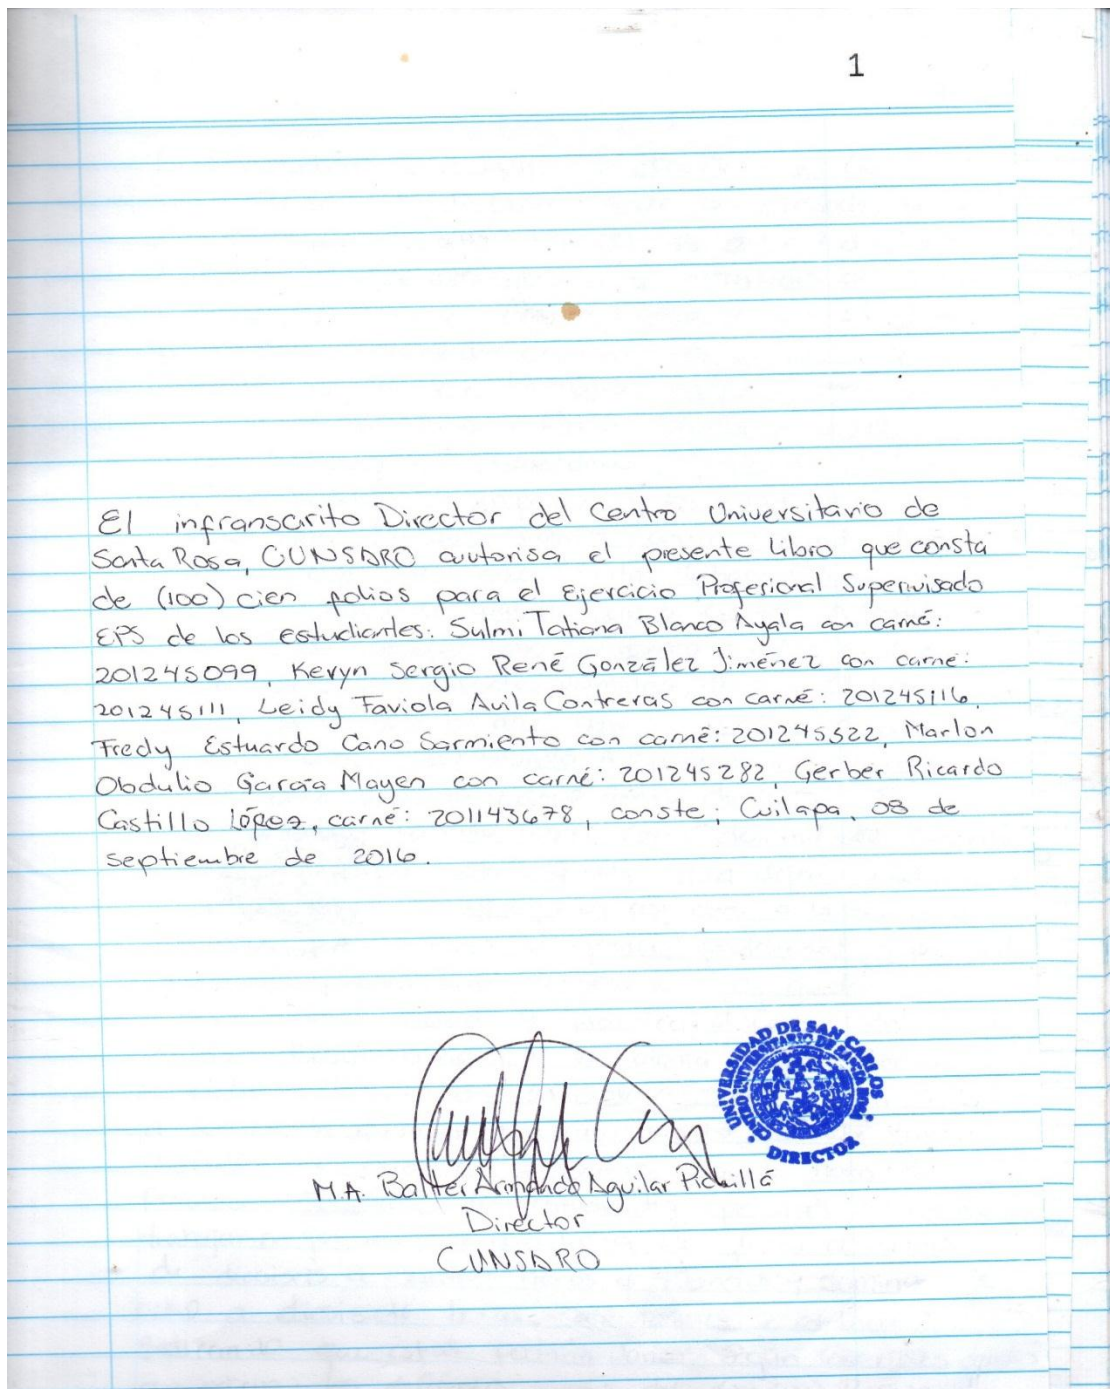 1
El infranscrito Director del Centro Universitario de
Santa Rosa, CUNSARO autorisa el presente libro que consta
de (100) cien folios para el Ejercicio Profesional Supervisado
EPS de los estudiantes: Sulmi Tatiana Blanco Ayala con carné:
201245099, Kevyn Sergio René González Jiménez con carné:
201245111, Leidy Faviola Avila Contreras con carné: 201245116,
Fredy Estuardo Cano Sarmiento con carné: 201245322, Marlon
Obdulio García Mayen con carné: 201245282, Gerber Ricardo
Castillo López, carné: 201143678, conste; Cuilapa, 08 de
septiembre de 2016.
UNIVERSIDAD DE SAN CARLOS
CENTRO UNIVERSITARIO DE SANTA ROSA
DIRECTOR
M.A. Balter Armando Aguilar Pichillá
Director
CUNSARO